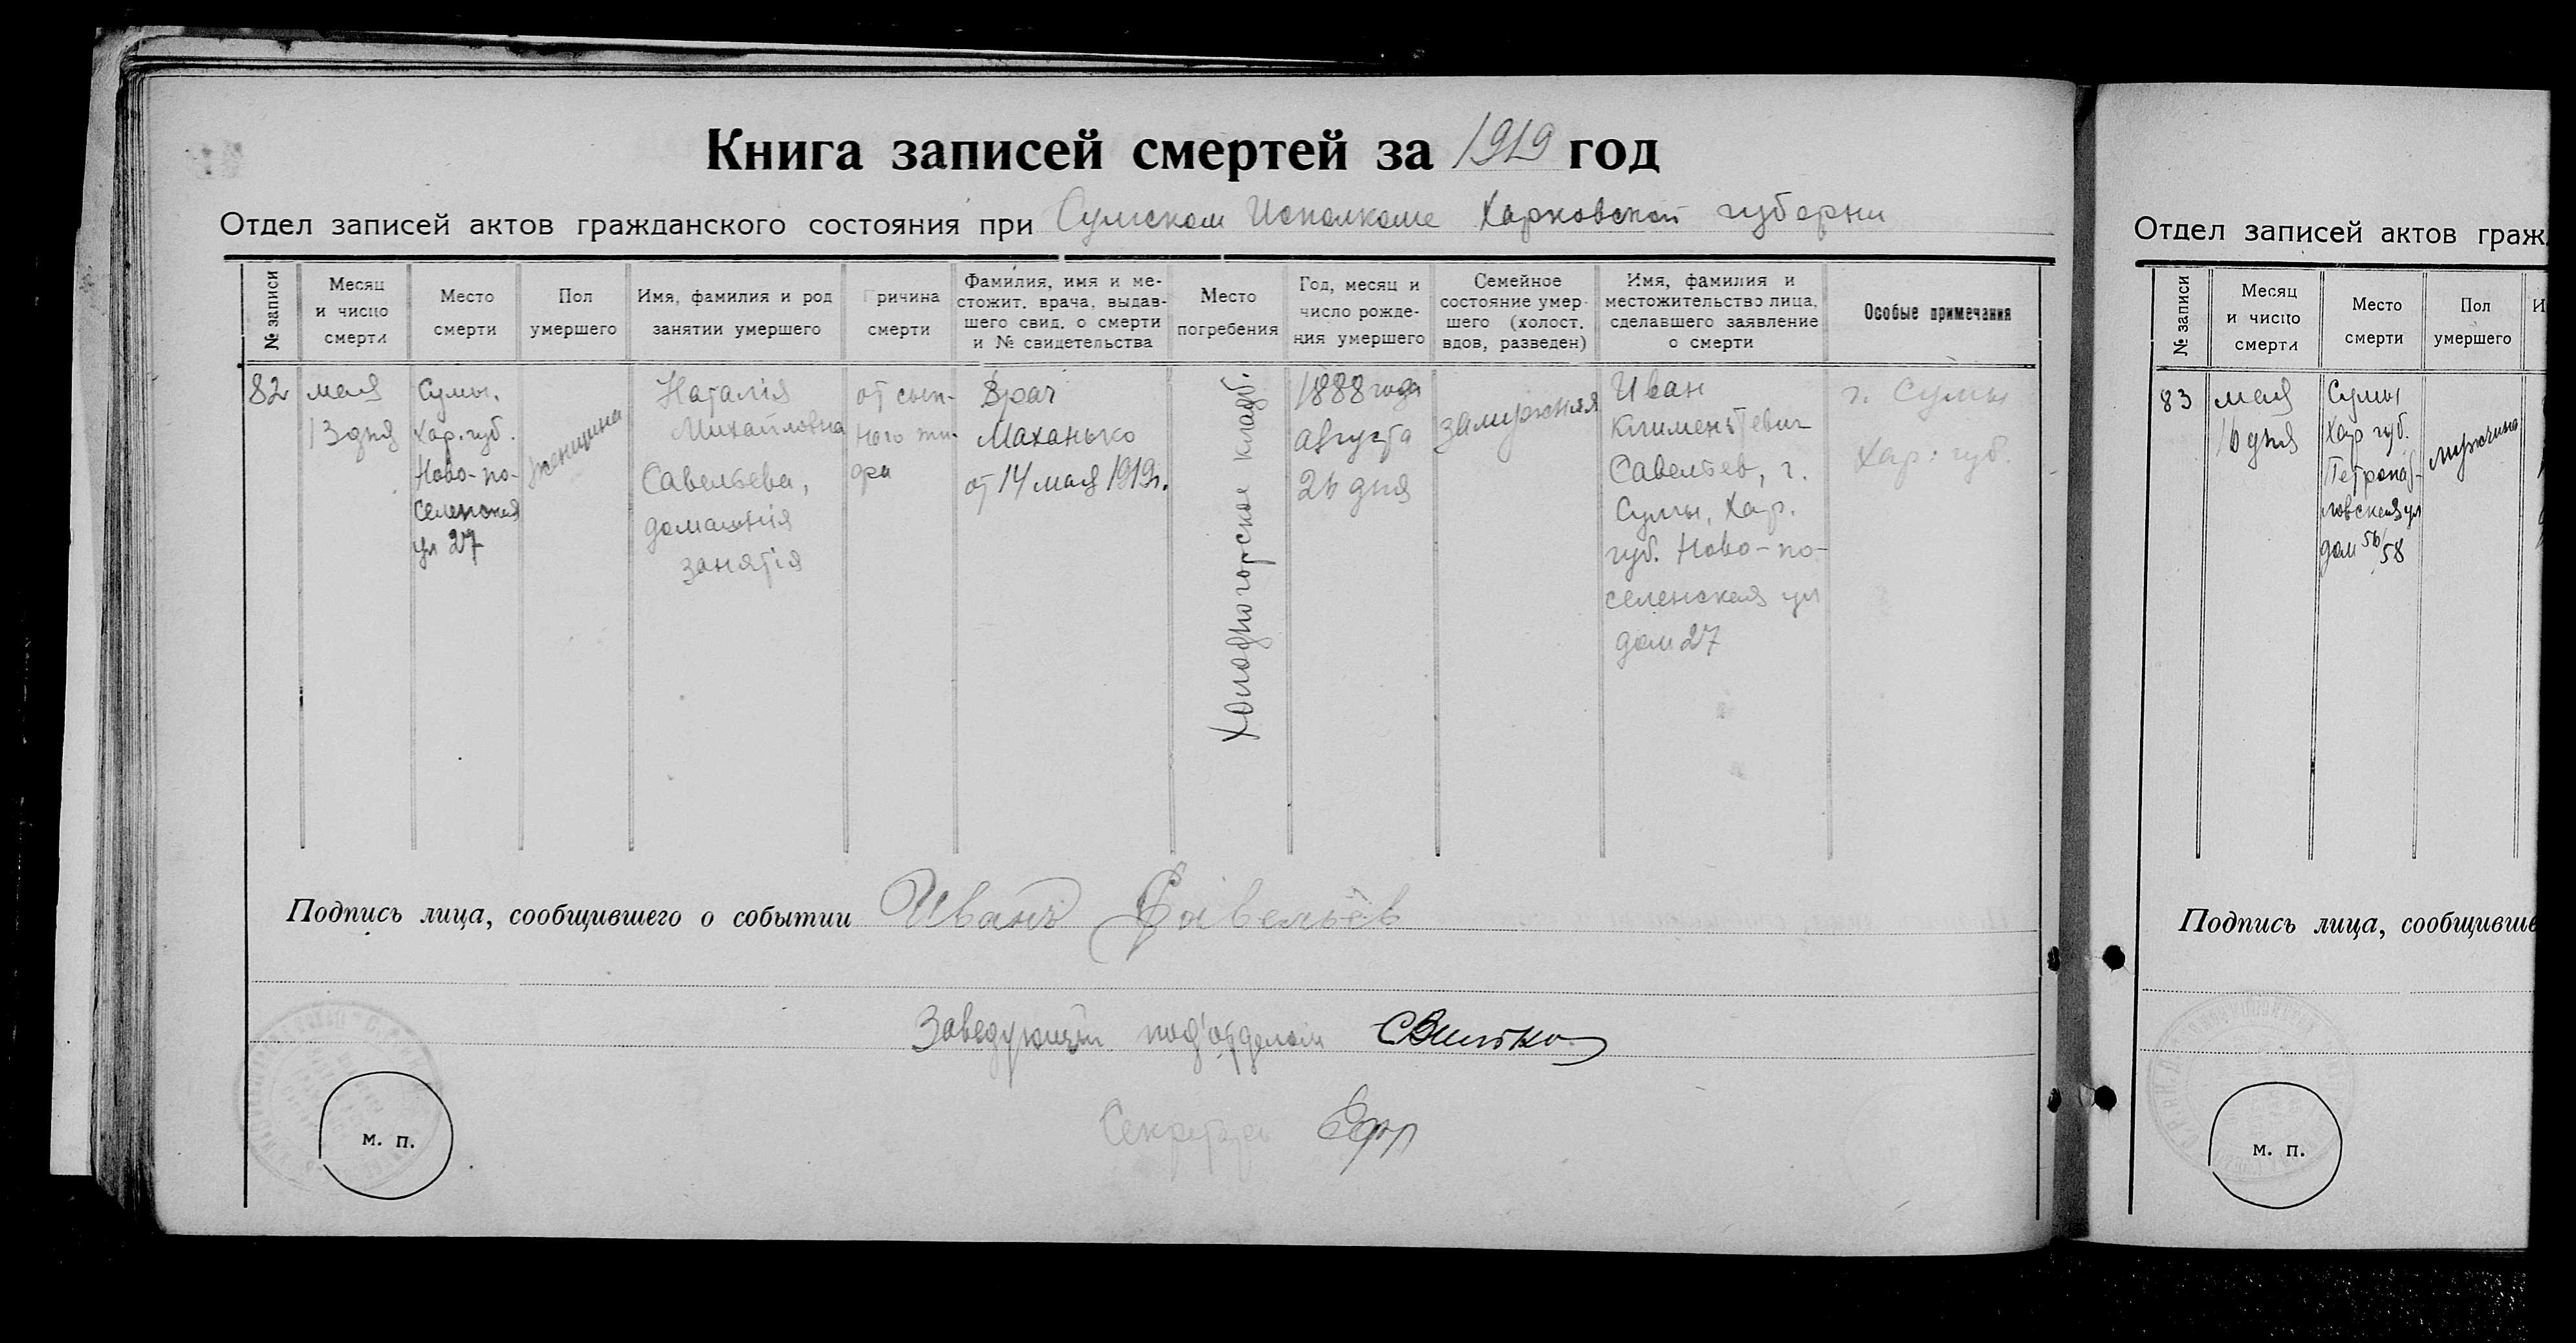 Книга записей смертей за 1919 год
Отдел записей актов гражданского состояния при Сумском Исполкоме Харковской губерни
№ записи
Месяц
и число
смерти
Место
смерти
Пол
умершего
Имя, фамилия и род
занятии умершего
Причина
смерти
Фамилия, имя и ме-
стожит. врача, выдав-
шего свид. о смерти
и № свидетельства
Место
погребения
Год, месяц и
число рожде-
ния умершего
Семейное
состояние умер-
шего (холост.
вдов, разведен)
Имя, фамилия и
местожительство лица,
сделавшего заявление
о смерти
Особые примечания
82
мая
13 дня
Сумы,
Хар. губ.
Ново-по-
селенская
ул 27
женщина
Наталія
Михайловна
Савельева,
домашнія
занятія
от сып-
ного ти-
фа
Врач
Маханько
от 14 мая 1919г.
Холодногорское кладб.
1888 года
августа
26 дня
замужняя
Иван
Климентевич
Савельев, г.
Сумы, Хар.
губ. Ново-по-
селенская ул
дом 27
г. Сумы
Хар. губ.
Подпись лица, сообщившего о событии Иванъ Савельев
Заведующий под'отделом
Секретарь
м. п.
Отдел записей актов граж
№ записи
Месяц
и число
смерти
Место
смерти
Пол
умершего
83
мая
16 дня
Сумы
Хар губ.
Петропав-
ловская ул
дом 56/58
мужчина
Подпись лица, сообщивше
м. п.